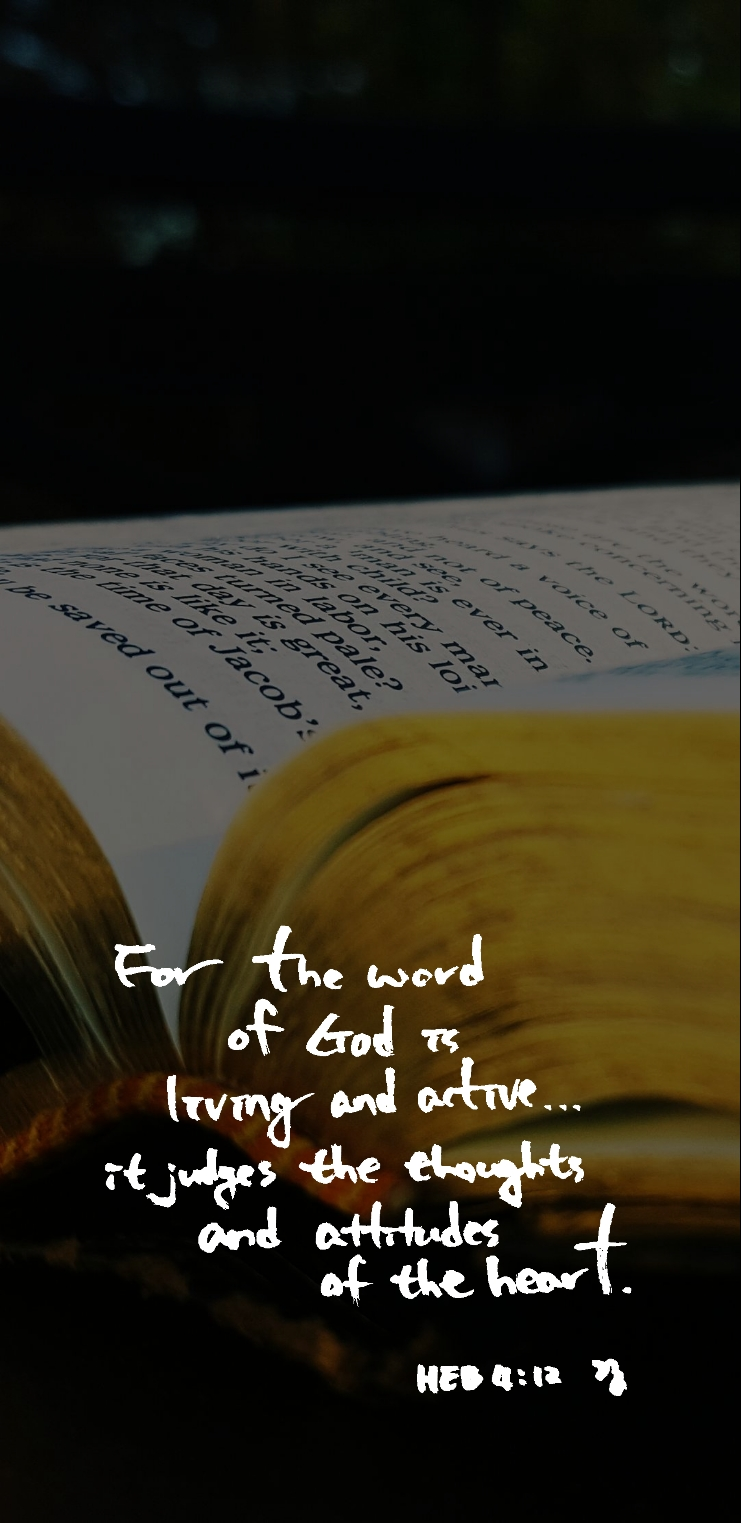 heard a voice of
not of peace.
says the LORD:
concerning
man is ever in
child?
see,
see every mar
with
hands on his loi
man in labor,
turned pale?
that day is great,
none is like it;
the time of Jacob's
be saved out of
For the word
of God is
living and active...
it judges the thoughts
and attitudes
of the heart.
HEB 4:12